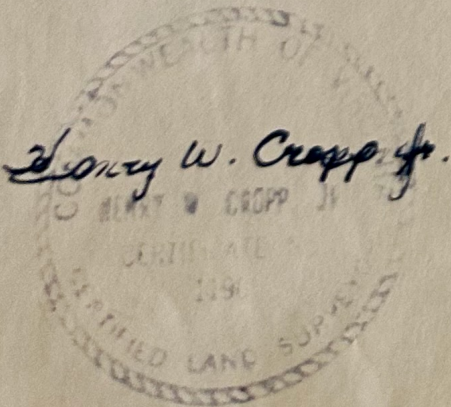 COMMONWEALTH OF
Henry W. Cropp Jr.
HENRY W CROPP JR
CERTIFICATE
CERTIFIED LAND SURVEYOR